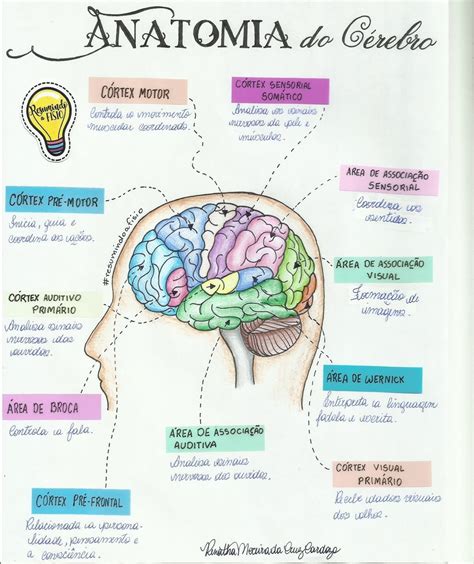 ANATOMIA do Cérebro
Resumindo
a FISIO
CÓRTEX MOTOR
Controla o movimento
muscular coordenado.
CÓRTEX SENSORIAL
SOMÁTICO
Analisa os sinais
nervosos da pele e
músculos.
ÁREA DE ASSOCIAÇÃO
SENSORIAL
Coordena os
sentidos.
CÓRTEX PRÉ-MOTOR
Inicia, guia e
coordena as ações.
#resumindoafisio
ÁREA DE ASSOCIAÇÃO
VISUAL
Formação de
imagens.
CÓRTEX AUDITIVO
PRIMÁRIO
Analisa sinais
nervosos dos
ouvidos.
ÁREA DE WERNICK
Interpreta a linguagem
falada e escrita.
ÁREA DE BROCA
Controla a fala.
ÁREA DE ASSOCIAÇÃO
AUDITIVA
Analisa sinais
nervosos dos ouvidos.
CÓRTEX VISUAL
PRIMÁRIO
Recebe dados visuais
dos olhos.
CÓRTEX PRÉ-FRONTAL
Relacionada a perso-
nalidade, pensamento e
a consciência.
Cruz Cardozo